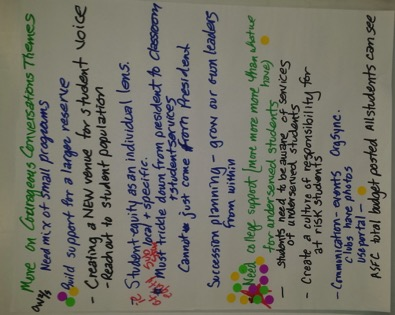 More on Courageous Conversations Themes
Need mix of small programs
Build support for a larger reserve
- Creating a NEW venue for student voice
- Reach out to student population
Student equity as an individual lens.
local + specific.
Must trickle down from president to classroom
+ student services
Cannot just come from President
Succession planning - grow our own leaders
from within
Need college support (more more more than what we
for underserved students have)
- students need to be aware of services
of underserved students
- Create a culture of responsibility for
at risk students
- Communication - events OrgSync.
clubs have photos
use portal -
ASFC total budget posted All students can see